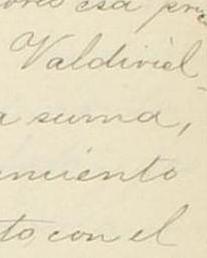 esa pri
Valdiviel-
a suma,
nuiento
to con el